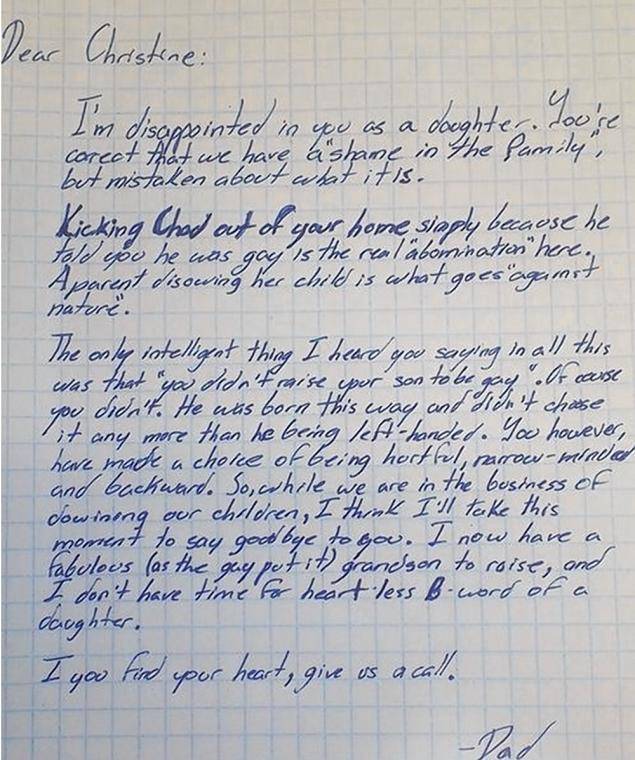 Dear Christine:
I'm disappointed in you as a daughter. You're
corect that we have a "shame in the family",
but mistaken about what it is.
Kicking Chad out of your home simply because he
told you he was gay is the real "abomination" here.
A parent disowing her child is what goes "against
nature".
The only intelligent thing I heard you saying in all this
was that "you didn't raise your son to be gay". Of course
you didn't. He was born this way and didn't choose
it any more than he being left-handed. You however,
have made a choice of being hurtful, narrow-minded
and backward. So, while we are in the business of
downing our children, I think I'll take this
moment to say goodbye to you. I now have a
fabulous (as the gay put it) grandson to raise, and
I don't have time for heart-less B-word of a
daughter.
I you find your heart, give us a call.
-Dad